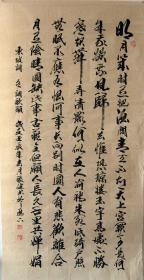 明月幾時有把酒問青天不知天上宮闕今夕是何
年我欲乘風歸去又恐瓊樓玉宇高處不勝
寒起舞弄清影何似在人間轉朱閣低綺戶照
無眠不應有恨何事長向別時圓人有悲歡離合
月有陰晴圓缺此事古難全但願人長久千里共嬋娟
東坡詞 水調歌頭